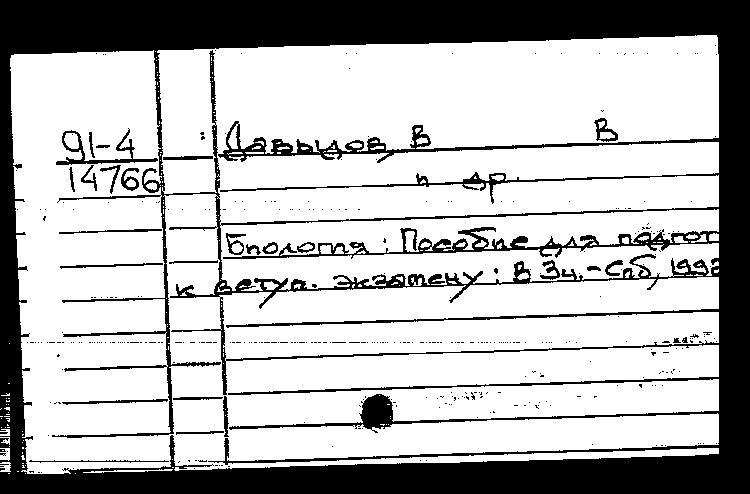 91-4 : Давыдов, В В
14766 и др.
Биология : Пособие для подгот
к вступ. экзамену : В 3ч. - Спб, 1992